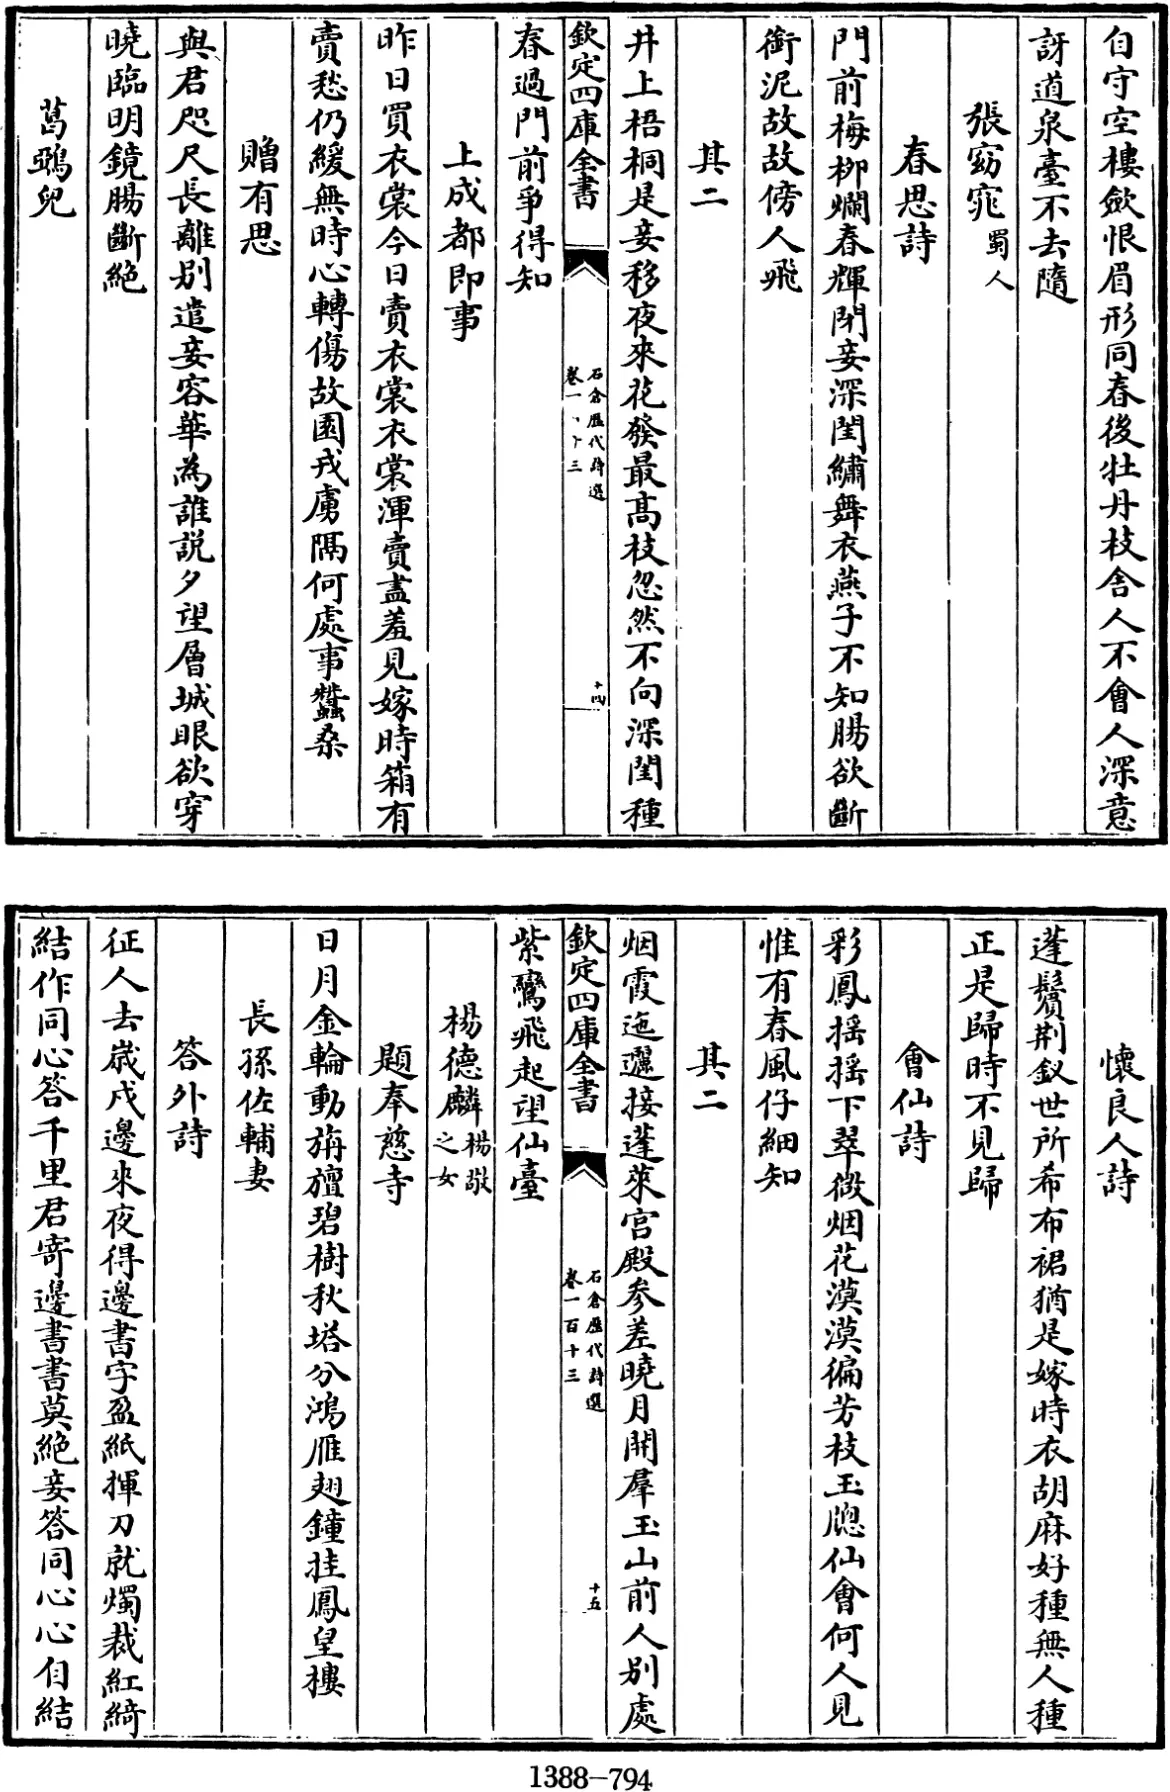 自守空樓斂恨眉形同春後牡丹枝舎人不會人深意
訝道泉臺不去隨
張窈窕蜀人
春思詩
門前梅栁爛春輝閉妾深閨繡舞衣燕子不知腸欲斷
銜泥故故傍人飛
其二
井上梧桐是妾移夜來花發最髙枝忽然不向深閨種
欽定四庫全書
石倉歷代詩選
卷一十三
十四
春過門前爭得知
上成都即事
昨日買衣裳今日賣衣裳衣裳渾賣盡羞見嫁時箱有
賣愁仍緩無時心轉傷故園戎虜隅何處事蠶桑
贈有思
與君咫尺長離别遣妾容華為誰説夕望層城眼欲穿
曉臨明鏡腸斷絶
葛鵶兒
懷良人詩
蓬鬢荆釵世所希布裙猶是嫁時衣胡麻好種無人種
正是歸時不見歸
會仙詩
彩鳳揺揺下翠微烟花漠漠徧芳枝玉牎仙會何人見
惟有春風仔細知
其二
烟霞迤邐接蓬萊宫殿參差曉月開羣玉山前人别處
欽定四庫全書
石倉歷代詩選
卷一百十三
十五
紫鸞飛起望仙臺
楊德麟楊敬之女
題奉慈寺
日月金輪動旃檀碧樹秋塔分鴻雁翅鐘挂鳳皇樓
長孫佐輔妻
答外詩
征人去嵗戍邊來夜得邊書字盈紙揮刀就燭裁紅綺
結作同心答千里君寄邊書書莫絶妾答同心心自結
1388-794